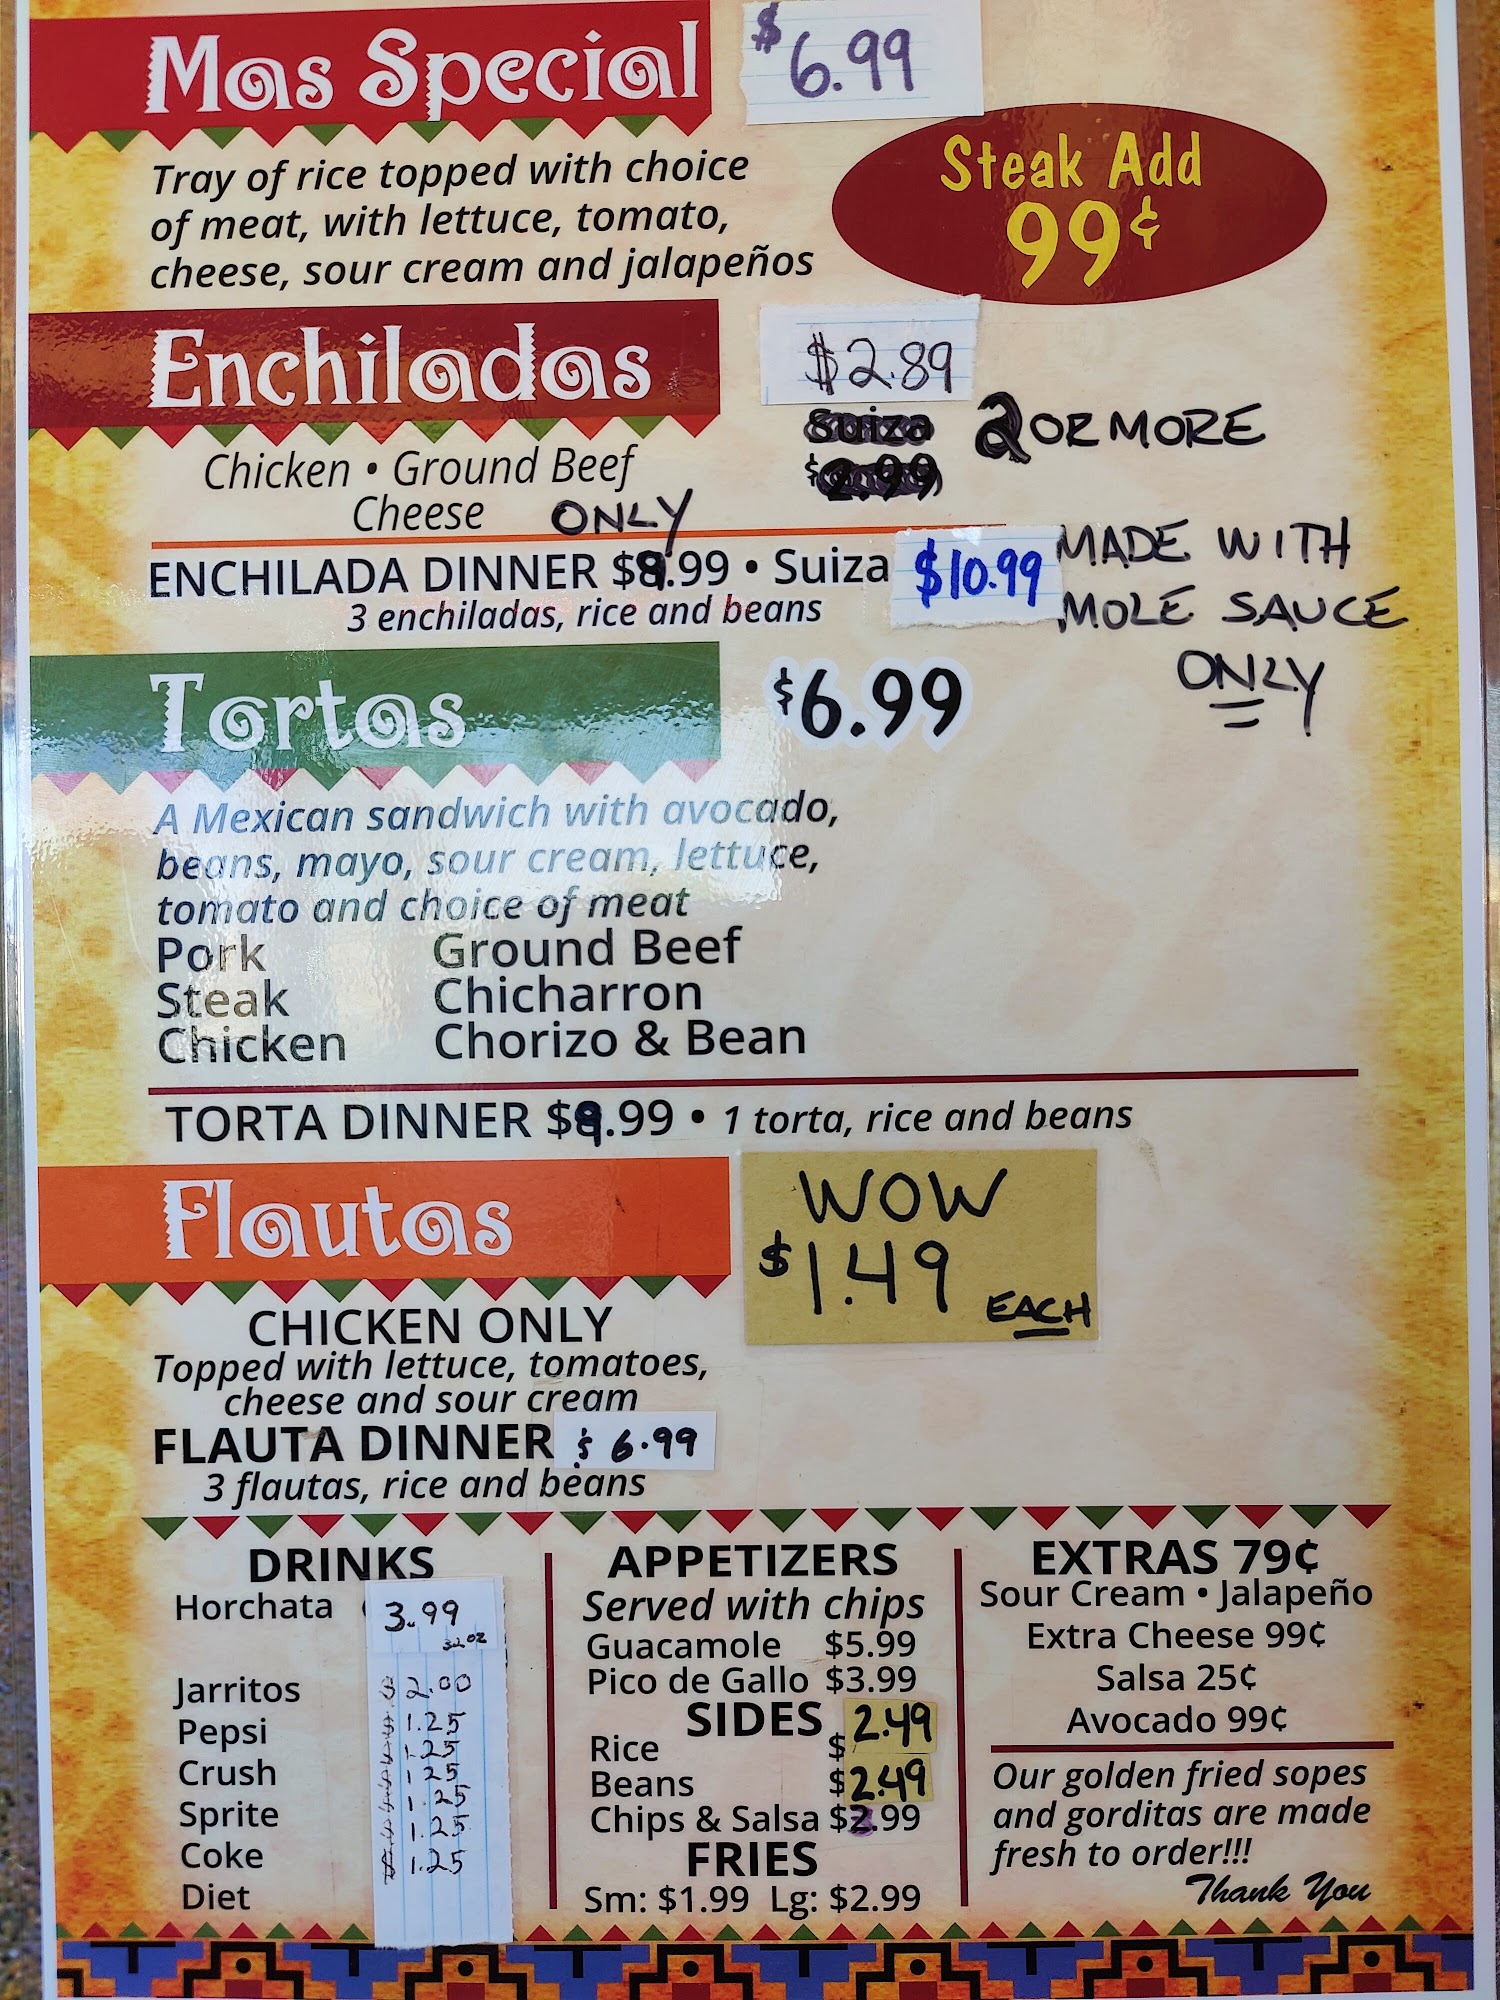 Mas Special $6.99
Steak Add
99¢
Tray of rice topped with choice
of meat, with lettuce, tomato,
cheese, sour cream and jalapeños
Enchiladas $2.89
Suiza 2 OR MORE
$2.99
Chicken • Ground Beef
Cheese ONLY
ENCHILADA DINNER $9.99 • Suiza $10.99
3 enchiladas, rice and beans
MADE WITH
MOLE SAUCE
ONLY
Tortas $6.99
A Mexican sandwich with avocado,
beans, mayo, sour cream, lettuce,
tomato and choice of meat
Pork Ground Beef
Steak Chicharron
Chicken Chorizo & Bean
TORTA DINNER $9.99 • 1 torta, rice and beans
Flautas
WOW
$1.49
EACH
CHICKEN ONLY
Topped with lettuce, tomatoes,
cheese and sour cream
FLAUTA DINNER $6.99
3 flautas, rice and beans
DRINKS
Horchata 3.99
32 oz
Jarritos $2.00
Pepsi $1.25
$1.25
Crush $1.25
$1.25
Sprite $1.25
Coke $1.25
Diet
APPETIZERS
Served with chips
Guacamole $5.99
Pico de Gallo $3.99
SIDES
Rice $2.49
Beans $2.49
Chips & Salsa $.99
FRIES
Sm: $1.99 Lg: $2.99
EXTRAS 79¢
Sour Cream • Jalapeño
Extra Cheese 99¢
Salsa 25¢
Avocado 99¢
Our golden fried sopes
and gorditas are made
fresh to order!!!
Thank You